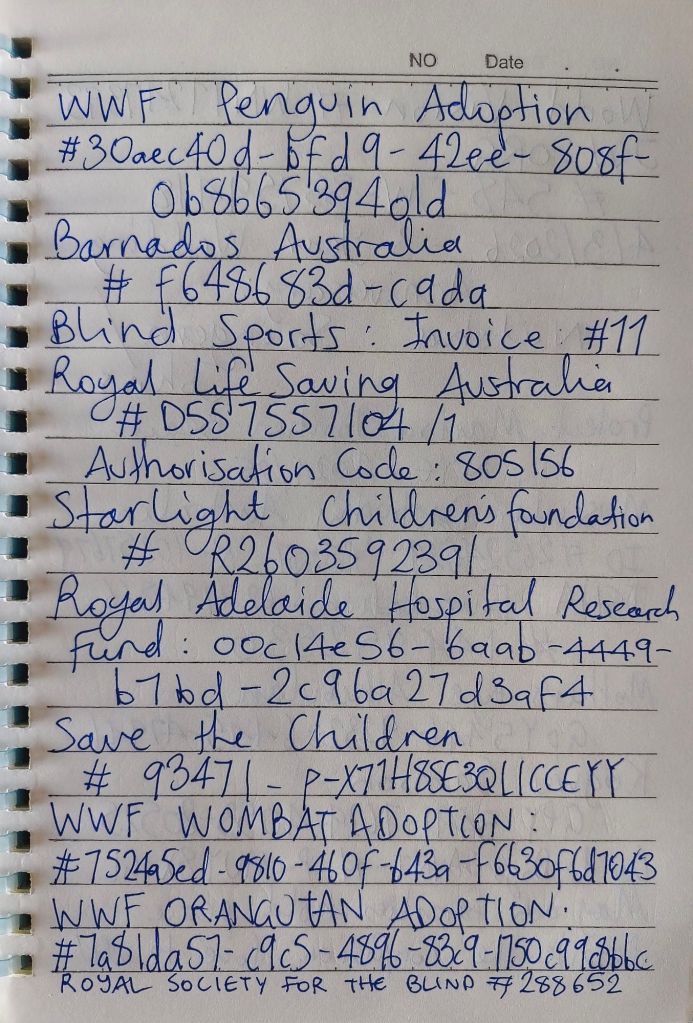 NO Date . .
WWF Penguin Adoption
#30aec40d-bfd9-42ee-808f-
0b8665394old
Barnados Australia
# f648683d-c9da
Blind Sports: Invoice #11
Royal Life Saving Australia
# D557557104/1
Authorisation Code: 805156
Starlight Children's foundation
# R2603592391
Royal Adelaide Hospital Research
Fund: 00c14e56-6aab-4449-
b7bd-2c96a27d3af4
Save the Children
# 93471-P-X71H8SE3QLICCEYY
WWF WOMBAT ADOPTION:
#7524a5ed-9810-460f-b43a-f6630f6d7043
WWF ORANGUTAN ADOPTION:
#7a81da57-c9c5-4896-83c9-1750c99c8b6c
ROYAL SOCIETY FOR THE BLIND #288652